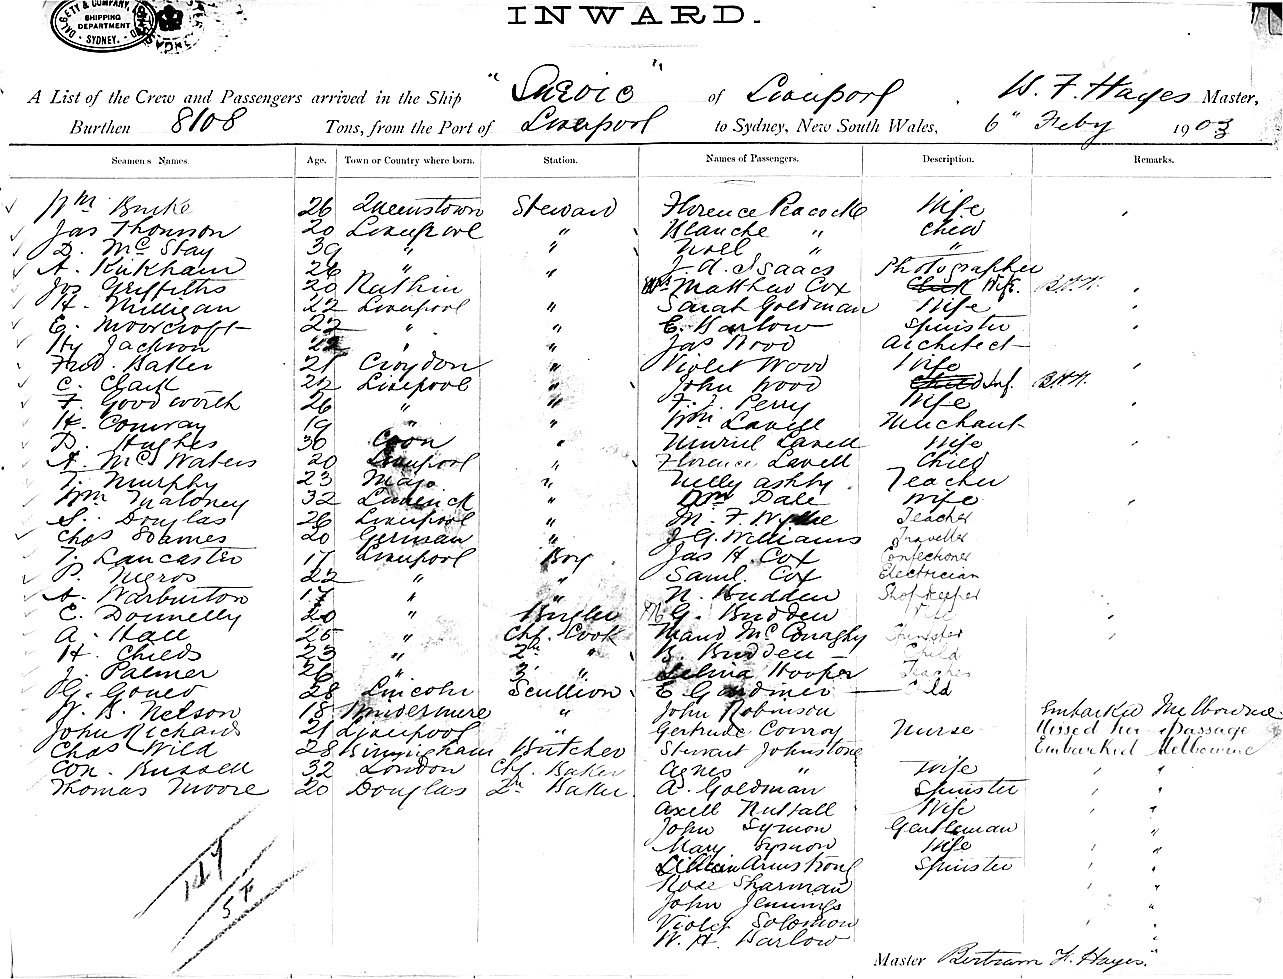 DALGETY & COMPANY, LTD
SHIPPING
DEPARTMENT
SYDNEY.
INWARD.
A List of the Crew and Passengers arrived in the Ship "Suevic" of Liverpool, Master,
Burthen 8108 Tons, from the Port of Liverpool to Sydney, New South Wales, 6" Feby 1903
Seamen's Names. Age. Town or Country where born. Station. Names of Passengers. Description. Remarks.
Wm Burke 26 Queenstown Steward Florence Peacocke Wife
Jas Thomson 20 Liverpool " Blanche " Child
D. McStay 39 " " Noel " "
A. Kirkham 26 " " J. A. Isaacs Photographer
Jos Griffiths 20 Ruthin " Matthew Cox Wife
H. Milligan 22 Liverpool " Sarah Goldman Wife
E. Moorcroft 22 " " E. Harlow Spinster
Hy Jackson 22 " " Jas Wood Architect
Fred. Baker 21 Croydon " Violet Wood Wife
C. Clark 22 Liverpool " John Wood Inf.
F. Goodworth 26 " " F. J. Perry Wife
H. Conway 19 " " Wm Lavell Merchant
D. Hughes 36 " Muriel Lavell Wife
A. McWaters 20 Liverpool " Florence Lavell Child
T. Murphy 23 Mayo " Nelly Ashby Teacher
Wm Maloney 32 Limerick " Wm Dale Wife
S. Douglas 26 Liverpool " M. F. Wyllie Teacher
Chas Soames 20 German " J. G. Williams Traveller
T. Lancaster 17 Liverpool Boy Jas H. Cox Confectioner
P. Negros 22 " " Saml. Cox Electrician
A. Warburton 17 " " N. Budden Shopkeeper
C. Donnelly 20 " Bugler G. Budden
A. Hall 25 " Chf. Cook Maud McConaghy Spinster
H. Childs 23 " 2nd " B. Budden Child
J. Palmer 26 " 3 " Selina Hooper
G. Gould 28 Lincoln Scullion E. Gardiner
W. B. Nelson 18 Windermere " John Robinson Embarked Melbourne
John Richards 21 Liverpool " Gertrude Conroy Nurse Missed her Passage
Chas Wild 28 Birmingham Butcher Stewart Johnstone Embarked Melbourne
Con. Russell 32 London Chf. Baker Agnes " Wife " "
Thomas Moore 20 Douglas 2nd Baker A. Goldman Spinster " "
Axell Nuttall Wife " "
John Symon Gentleman "
Mary Symon Wife " "
Lillian Armstrong Spinster " "
Rose Sharman " "
John Jennings "
Violet Solomon " "
W. H. Harlow "
Master Bertram F. Hayes.